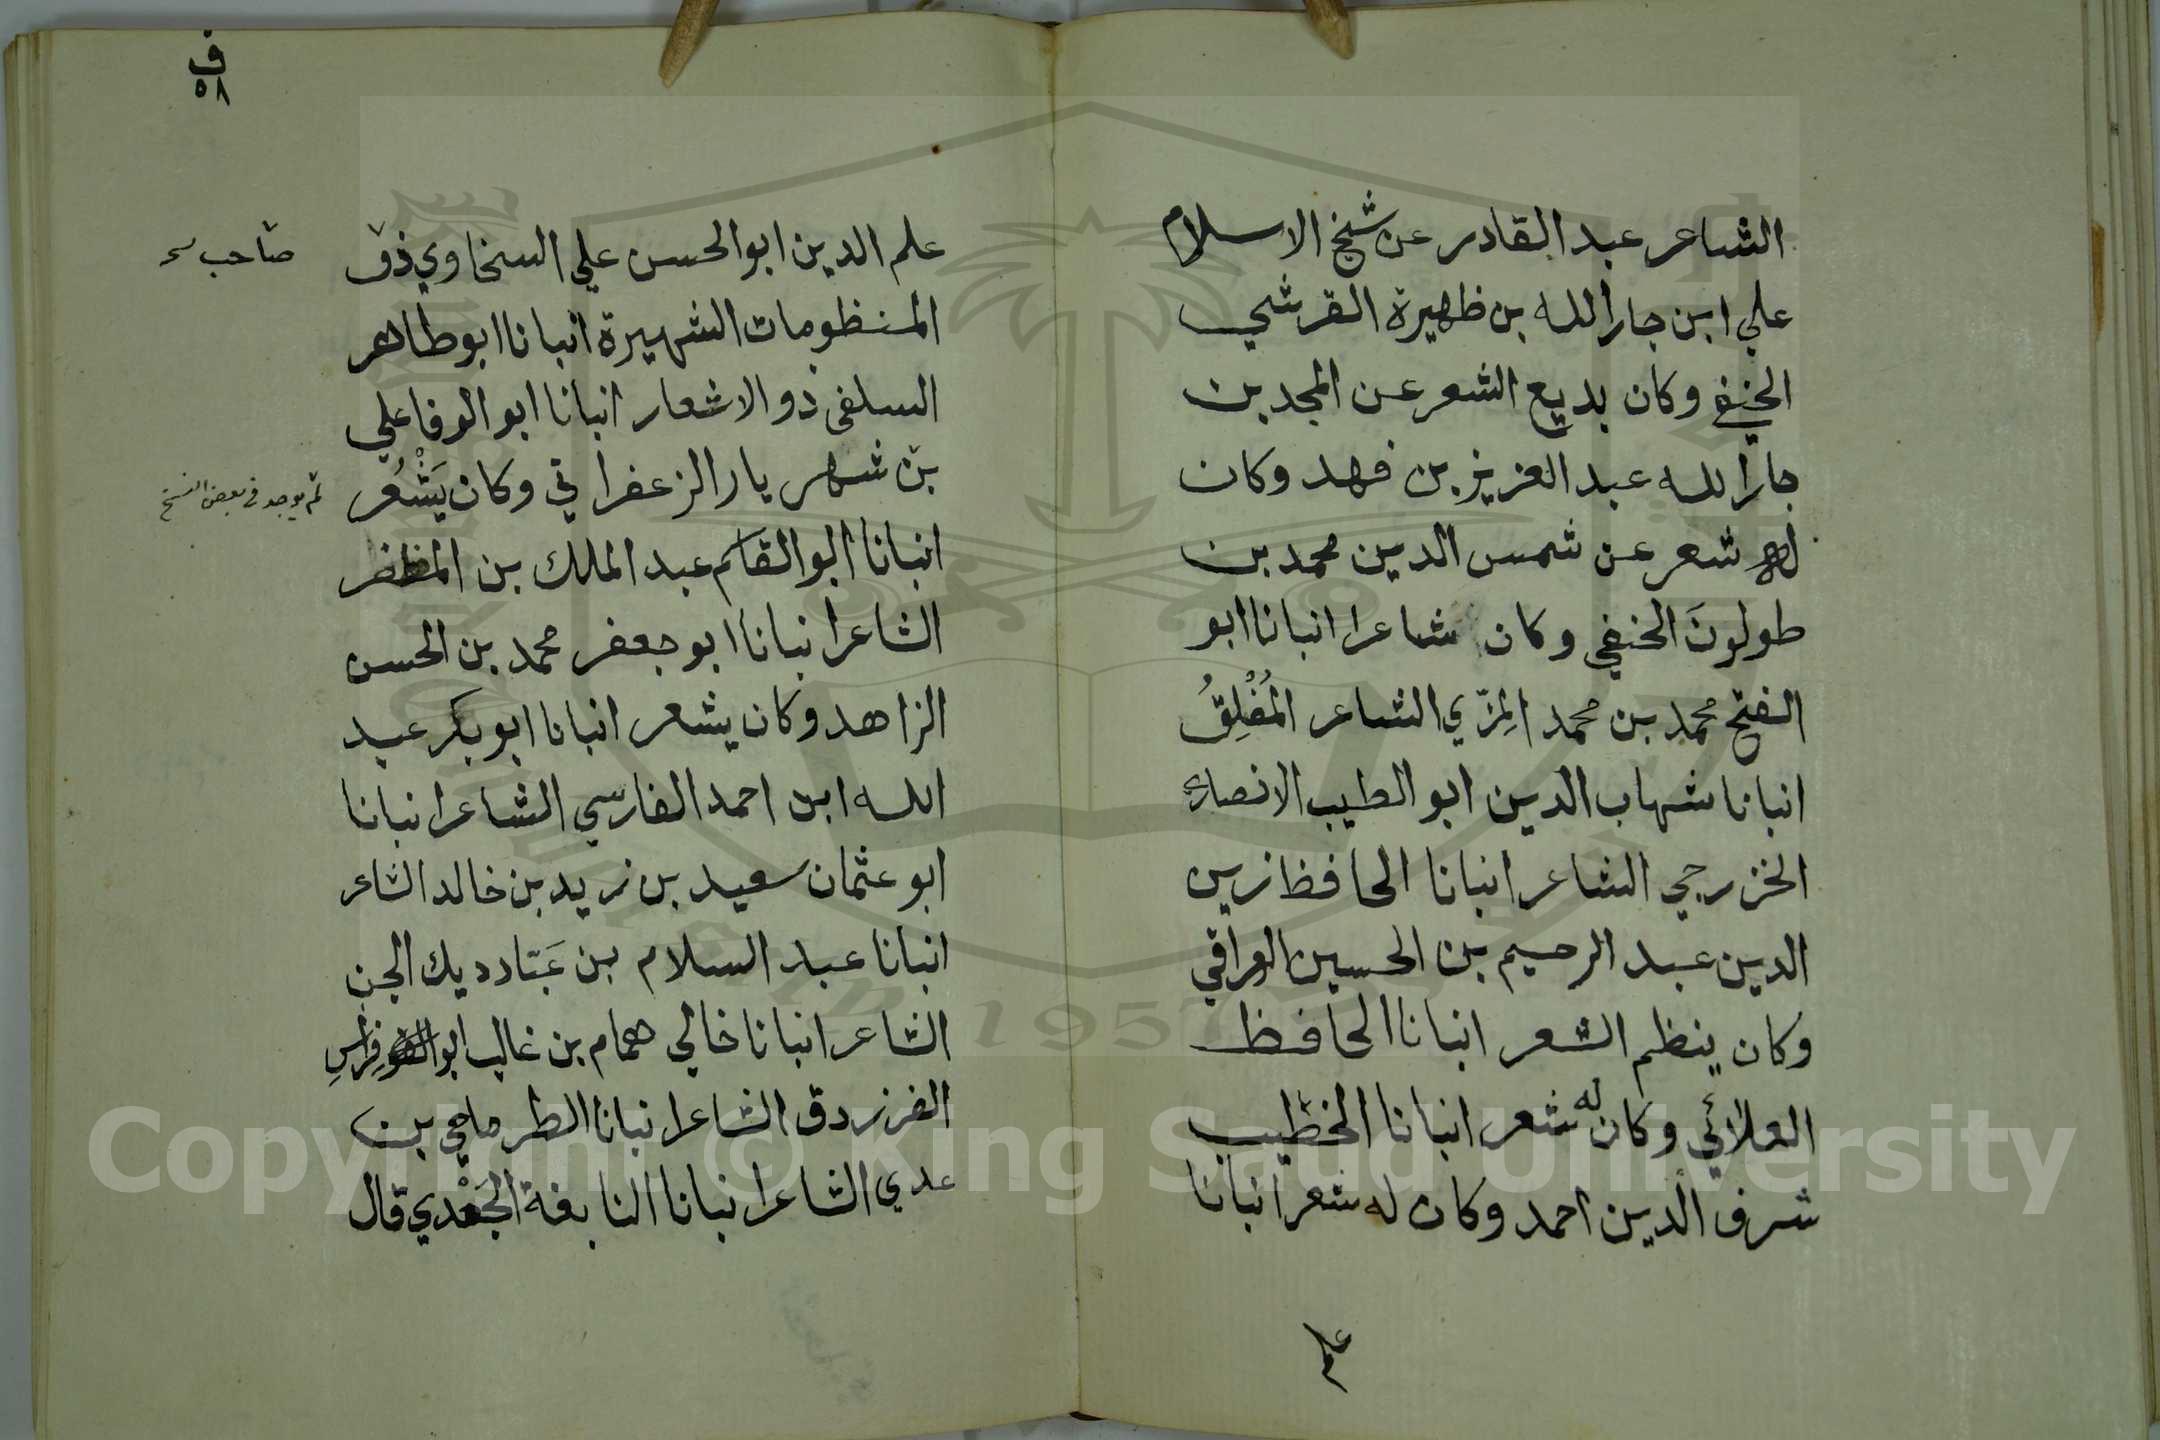 الشاعر عبد القادر عن شيخ الاسلام
علي ابن جار الله بن ظهيرة القرشي
الحنفي وكان بديع الشعر عن المجد بن
جار الله عبد العزيز بن فهد وكان
له شعر عن شمس الدين محمد بن
طولونَ الحنفي وكان شاعرا انبانا ابو
الفتح محمد بن محمد المِزّي الشاعر المُفْلِقُ
انبانا شهاب الدين ابو الطيب الانصاري
الخزرجي الشاعر انبانا الحافظ زين
الدين عبد الرحيم بن الحسين العراقي
وكان ينظم الشعر انبانا الحافظ
العلائي وكان له شعر انبانا الخطيب
شرف الدين احمد وكان له شعر انبانا
علم
ف
٥٨
علم الدين ابو الحسن علي السخاوي ذو
المنظومات الشهيرة انبانا ابو طاهر
السلفي ذو الاشعار انبانا ابو الوفا علي
بن شهر يار الزعفراني وكان يَشْعُر
انبانا ابو القاسم عبد الملك بن المظفر
الشاعر انبانا ابو جعفر محمد بن الحسن
الزاهد وكان يشعر انبانا ابو بكر عبد
الله ابن احمد الفارسي الشاعر انبانا
ابو عثمان سعيد بن زيد بن خالد الشاعر
انبانا عبد السلام بن عَبّاد ديك الجن
الشاعر انبانا خالي همام بن غالب ابو فِراسٍ
الفرزدق الشاعر انبانا الطرماحي بن
عدي الشاعر انبانا النابغة الجَعْدي قال
صاحب
لم يوجد في بعض النسخ
Copyright © King Saud University
1957